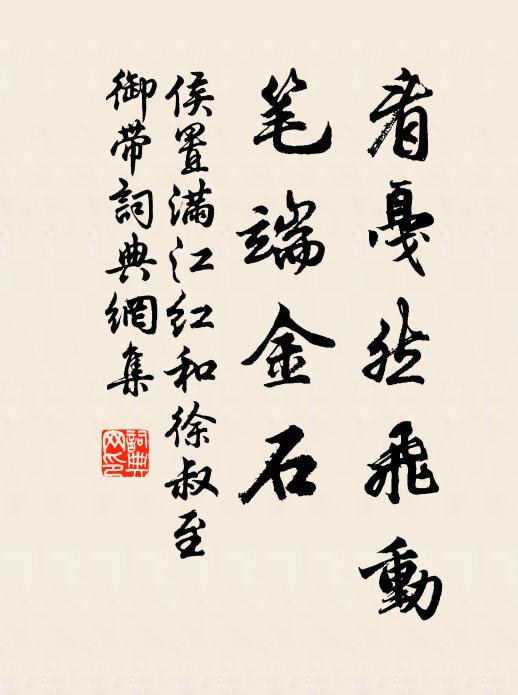 看戛然飛動
笔端金石
侯置满江红和徐叔至
御带詞典網集
詞典
网印